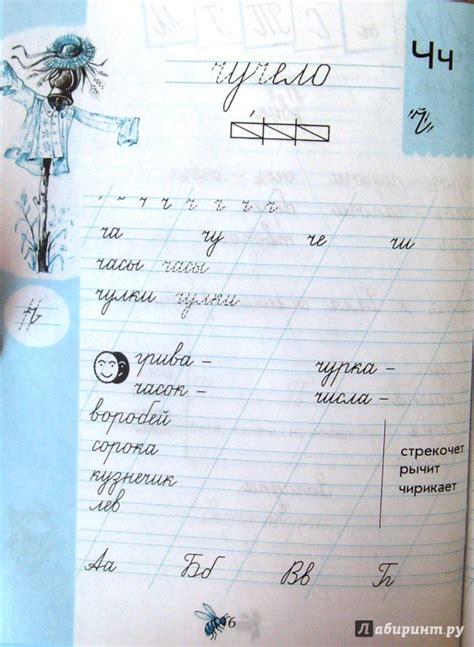 Чч
чучело
ч ч ч ч ч ч
ча чу че чи
часы часы
чулки чулки
грива – чурка –
часок – числа –
воробей
сорока
кузнечик
лев
стрекочет
рычит
чирикает
Аа Бб Вв
6
Лабиринт.ру